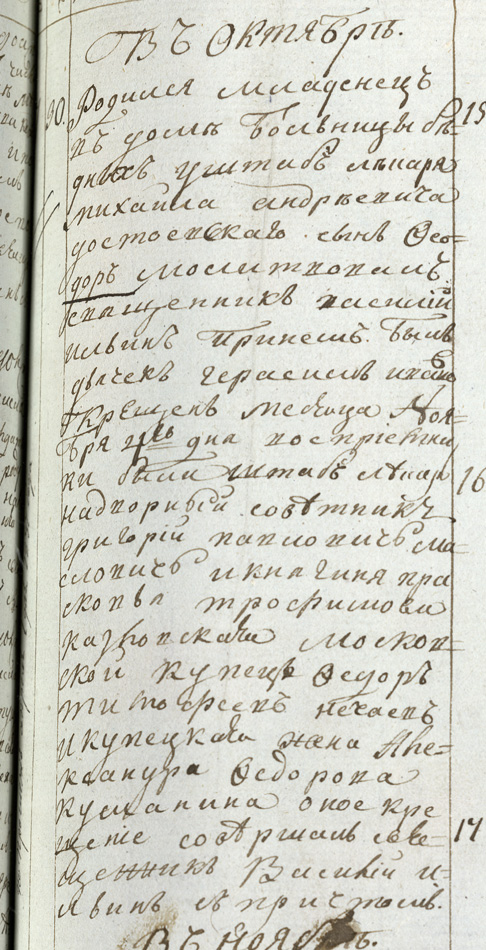 Въ Октябрѣ.
30. Родился младенецъ 15
въ домѣ больницы бѣ-
дныхъ уштабъ лѣкаря
михаила андрѣевича
достоевскаго. сынъ Ѳео-
доръ молитвовалъ.
священникъ василій
ильинъ принемъ былъ
дьячекъ герасимъ ивано
Крещенъ месеца Ноя-
бря 4го дня воспріемни
ки были штабъ лѣкар 16
надворный совѣтникъ
григорій павловичъ ма-
словичъ икнагиня пра
сковья трофимова
козловская москов-
ской купецъ Ѳедоръ
тимофеевъ нечаевъ
икупецкая жена Але-
ксандра Ѳедорова
куманина оное кре
щеніе совѣршалъ свя- 17
щенникъ Василій и-
льинъ съ причтомъ.
Въ Ноябрѣ.